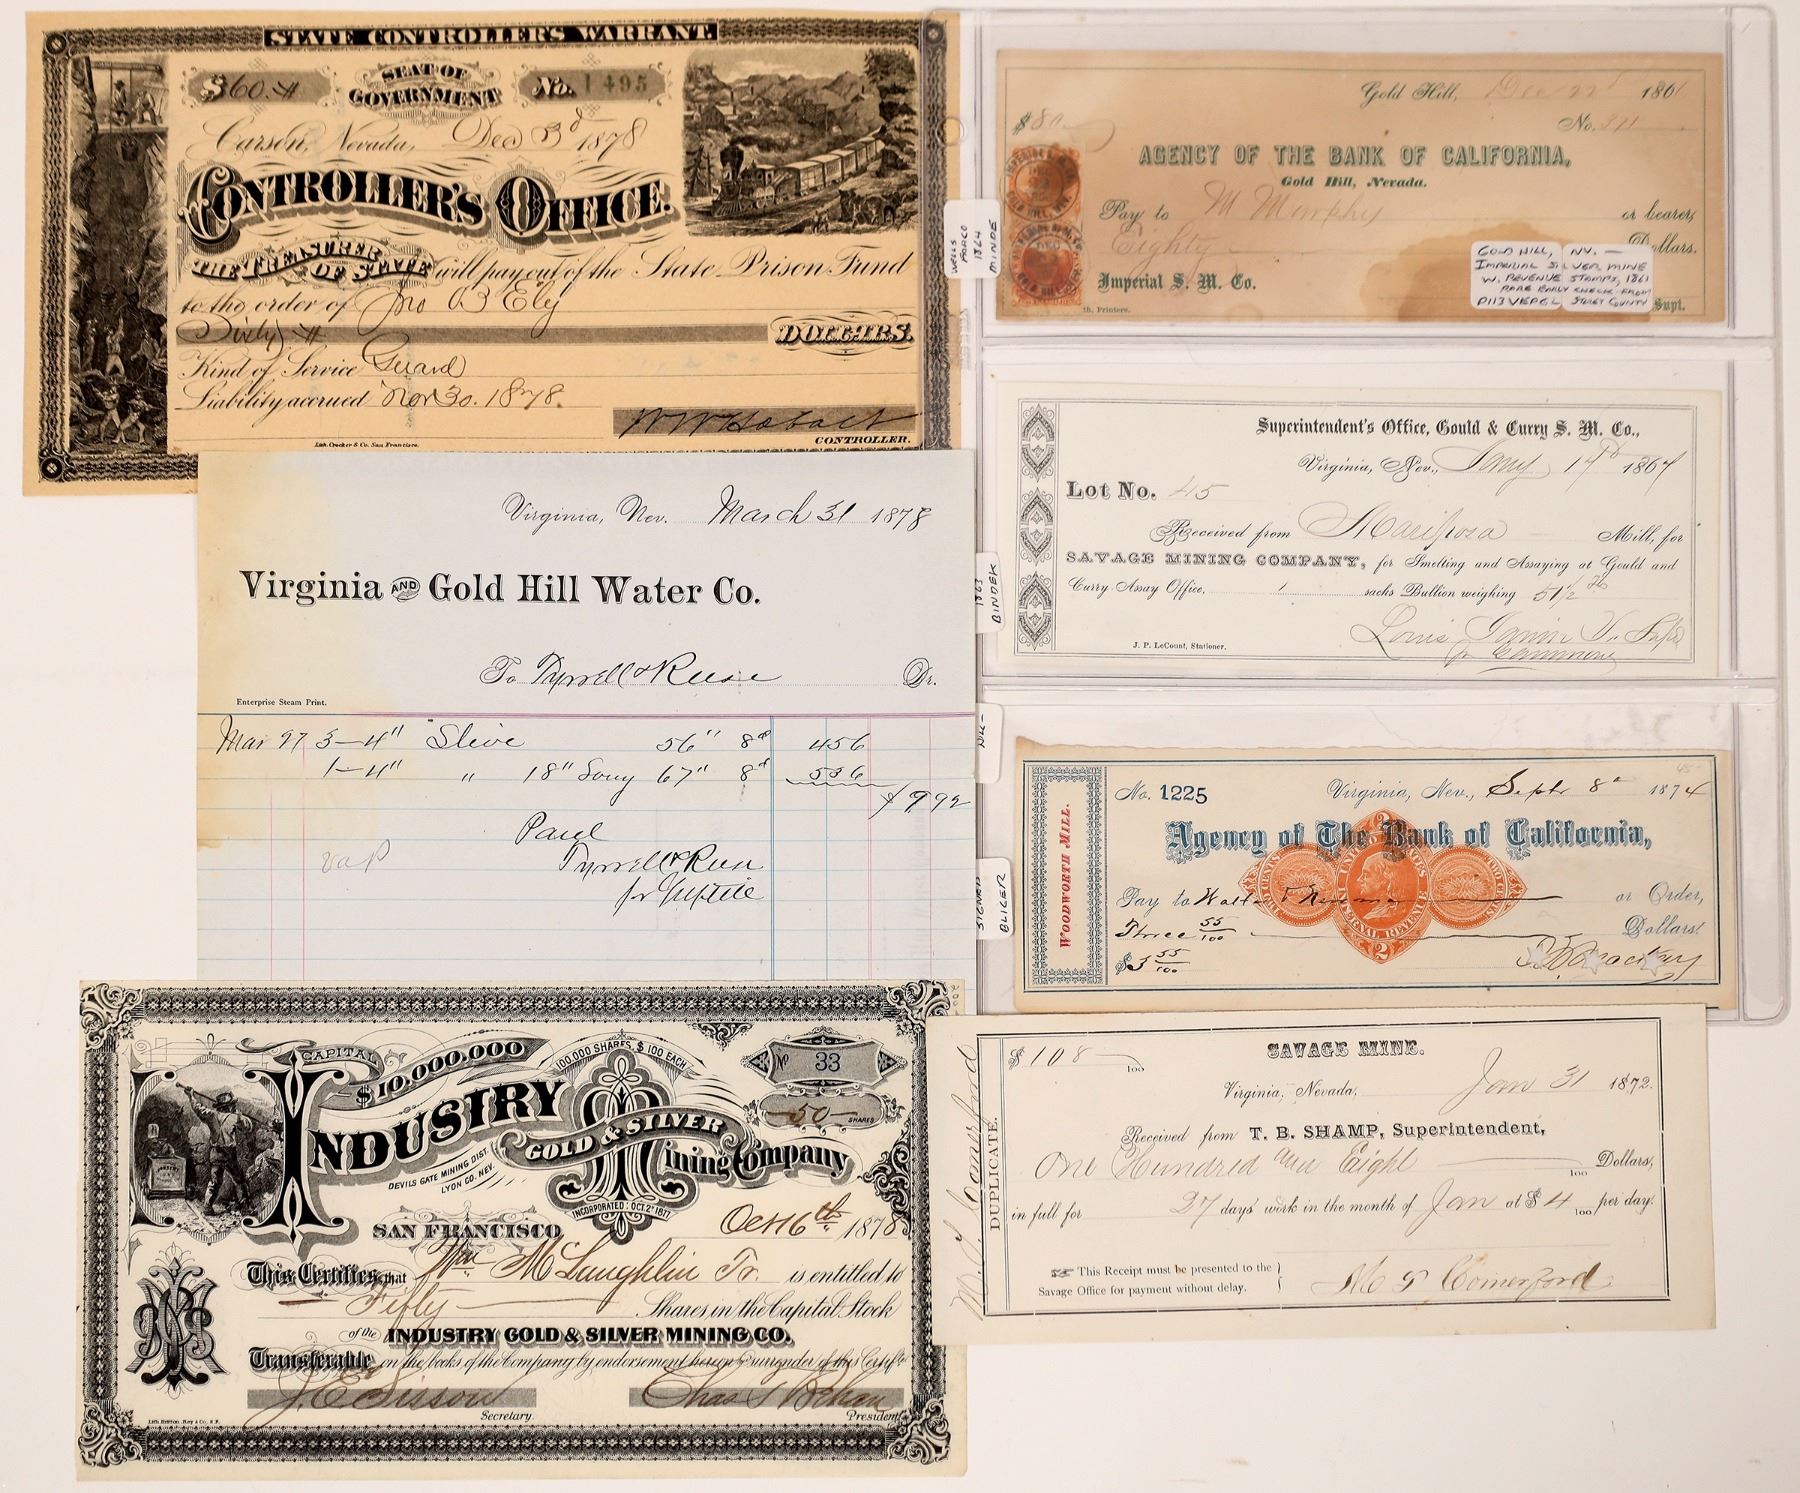 STATE CONTROLLER'S WARRANT.
$60.
SEAT OF GOVERNMENT
No. 1495
Carson, Nevada, Dec 3d 1878
CONTROLLER'S OFFICE.
THE TREASURER OF STATE will pay out of the State Prison Fund
to the order of Jno B Ely
Sixty DOLLARS.
Kind of Service Guard
Liability accrued Nov 30. 1878.
W W Hobart
CONTROLLER.
Lith. Crocker & Co. San Francisco.
Virginia, Nev. March 31 1878
Virginia AND Gold Hill Water Co.
To Tyrrell & Dr.
Enterprise Steam Print.
Mar 27 3-4" 56" 8d 456
1-4" " 18" Long 67" 8d 536
$9.92
Paid
Tyrrell &
for
CAPITAL $10,000,000
100,000 SHARES, $100 EACH
No 33
50 SHARES
INDUSTRY
GOLD & SILVER
Mining Company
DEVILS GATE MINING DIST.
LYON CO. NEV.
INCORPORATED: OCT. 2d 1877
SAN FRANCISCO Oct 16th 1878
This Certifies that Wm McLaughlin Tr. is entitled to
Fifty Shares in the Capital Stock
of the INDUSTRY GOLD & SILVER MINING CO.
Transferable on the books of the Company by endorsement hereon & surrender of this Certificate
J. E. Sisson
Secretary.
Chas
President
Lith. Britton, Rey & Co., S.F.
WELLS
FARGO
1864
MINDE
Gold Hill, Dec 22d 1861
$80
No. 311
AGENCY OF THE BANK OF CALIFORNIA,
Gold Hill, Nevada.
Pay to M Murphy or bearer,
Eighty Dollars.
Imperial S. M. Co.
Supt.
Printers.
GOLD HILL, NV. -
IMPERIAL SILVER MINE
W. REVENUE STAMPS, 1861
RARE EARLY CHECK FROM
STOREY COUNTY
1863
BINDER
Superintendent's Office, Gould & Curry S. M. Co.,
Virginia, Nev., Jany 14th 1864
Lot No. 45
Received from Mariposa Mill, for
SAVAGE MINING COMPANY, for Smelting and Assaying at Gould and
Curry Assay Office, 1 sacks Bullion weighing 51 1/2 lb
Louis Janin Jr Supt
J. P. LeCount, Stationer.
SIGNED
WOODWORTH MILL.
No. 1225 Virginia, Nev., Sept 8th 1874
Agency of The Bank of California,
Pay to or Order,
Three 55/100 Dollars.
$3 55/100
U.S. INTERNAL REVENUE
2
SAVAGE MINE.
$108 100
Virginia, Nevada, Jan 31 1872.
DUPLICATE.
M. T. Comerford
Received from T. B. SHAMP, Superintendent,
One Hundred and Eight 100 Dollars,
in full for 27 days' work in the month of Jan at $4 100 per day.
This Receipt must be presented to the
Savage Office for payment without delay.
M T Comerford